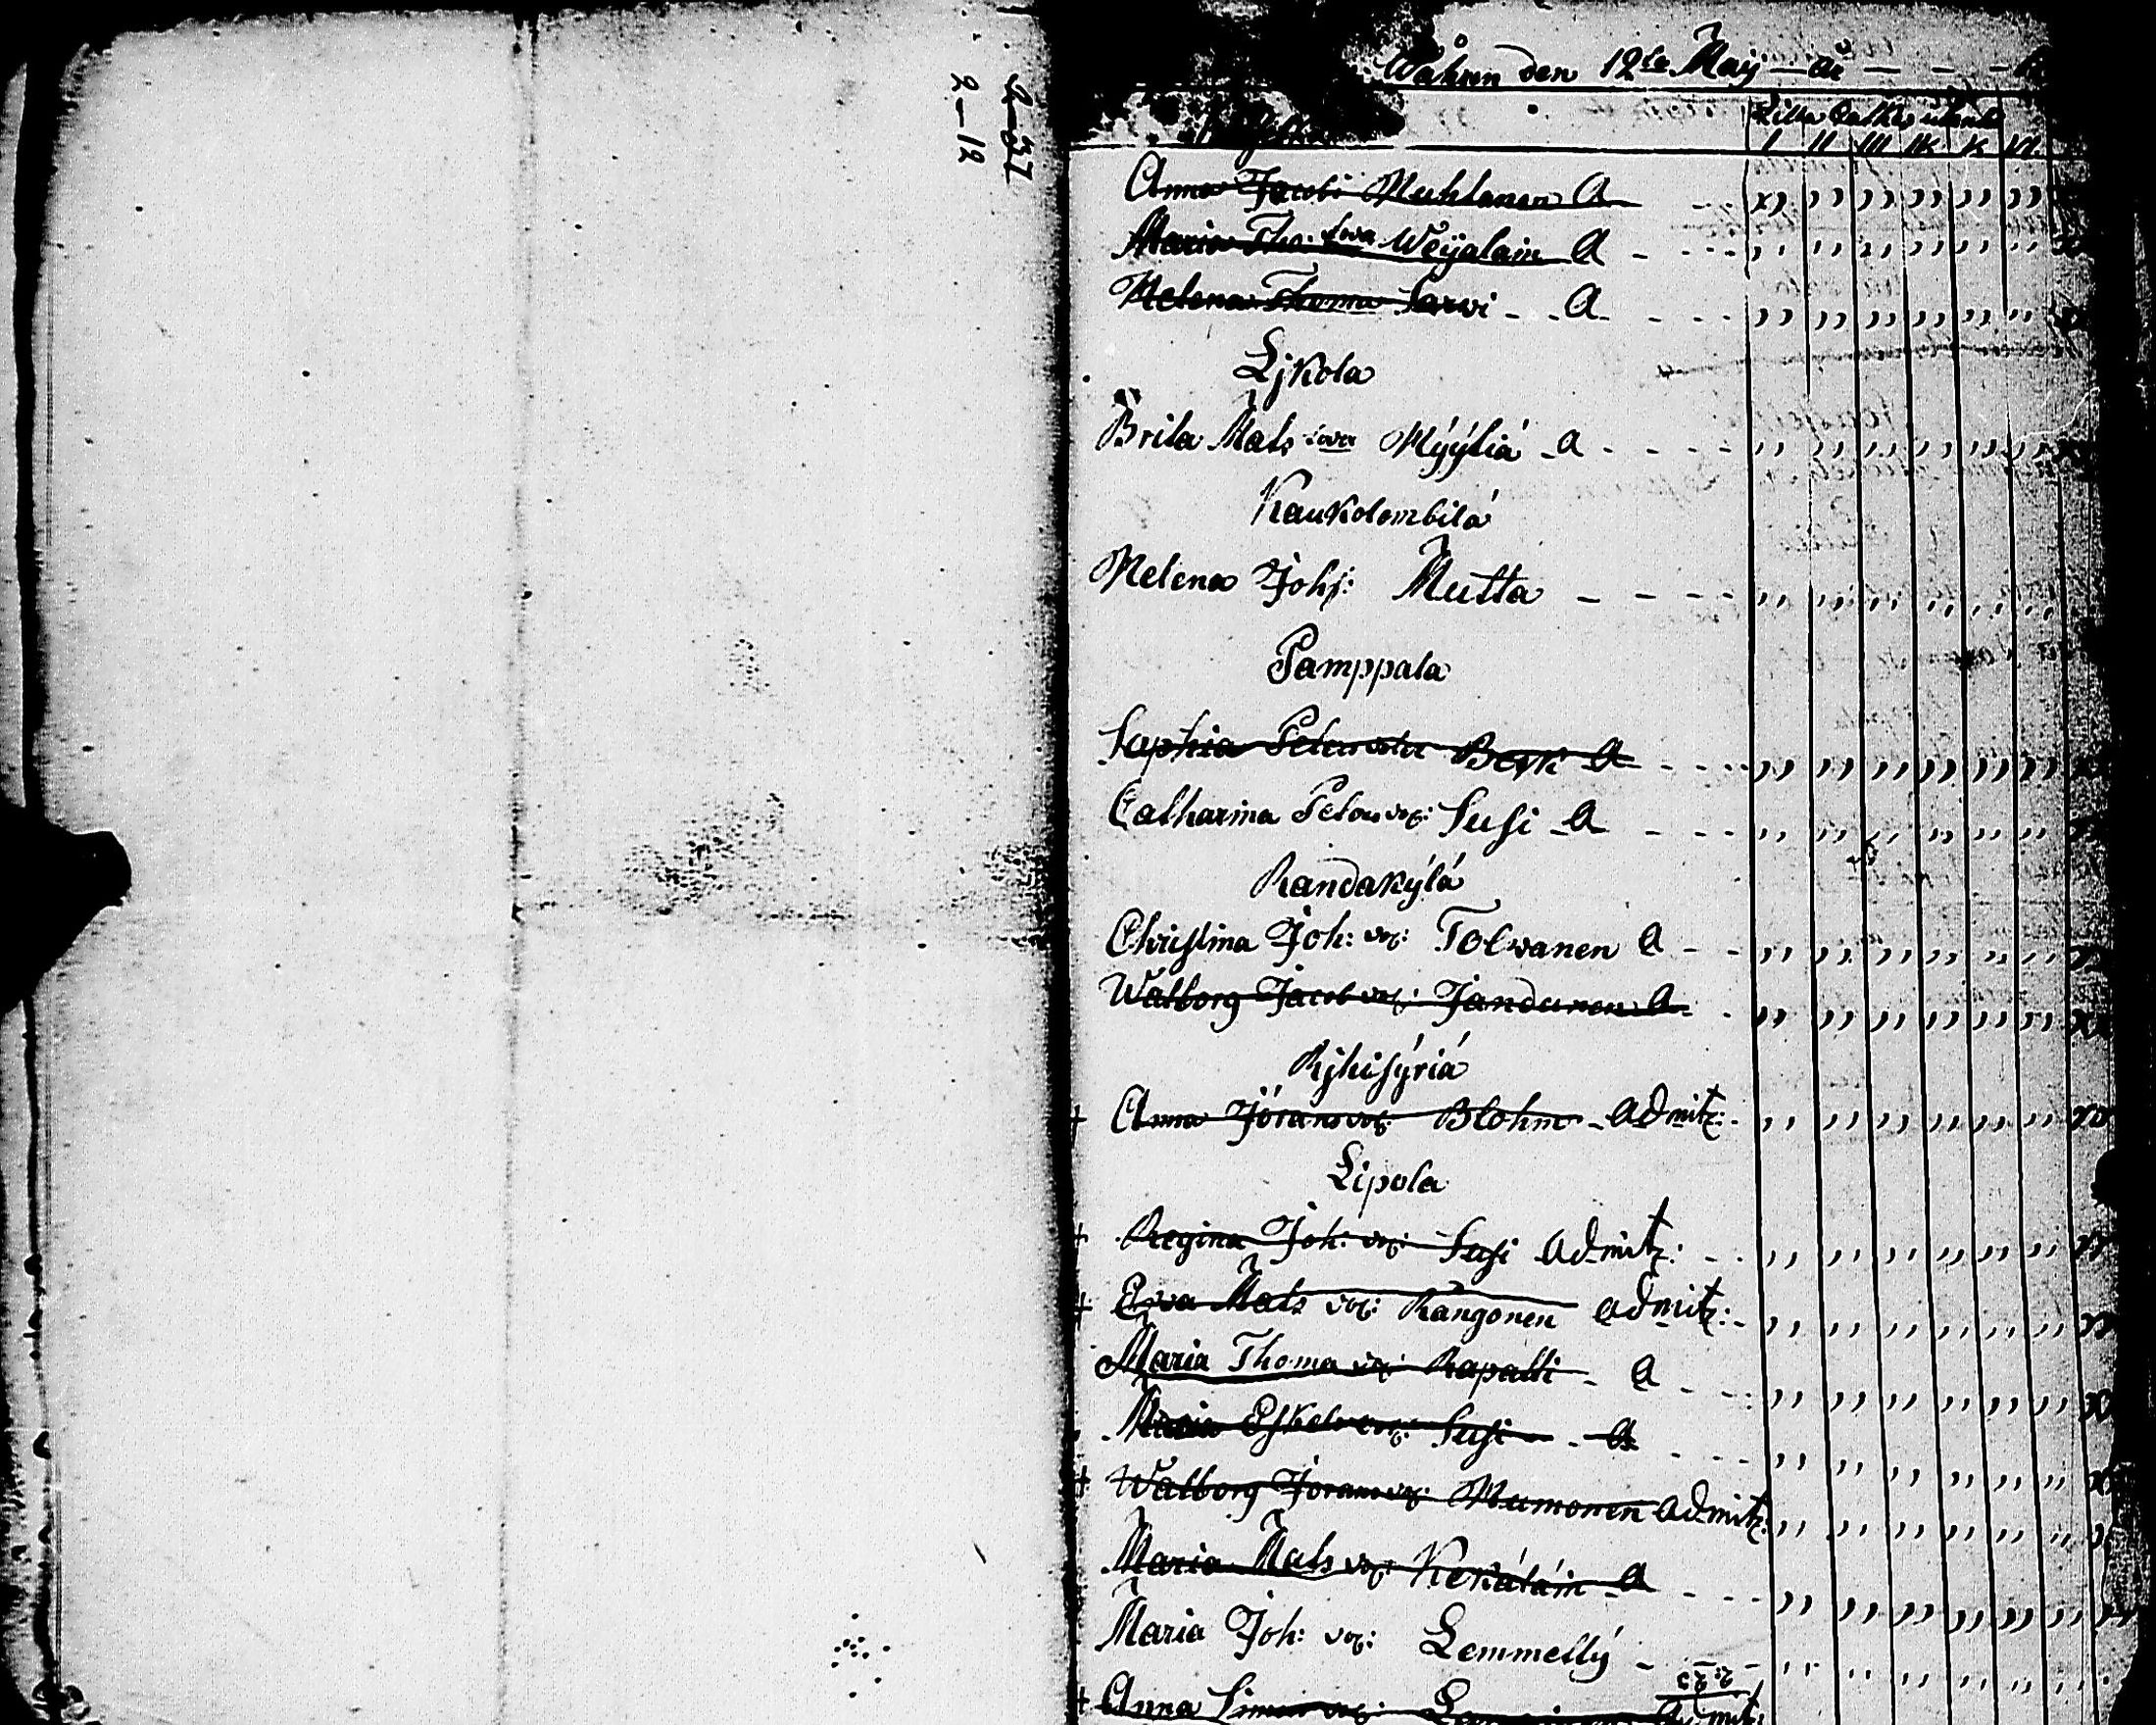 2–37
2–12
Wåhren den 12te Maij
Lilla Cathes
I II III IV V VI
Anna Jacobi Muhlanen A
Maria Tho: Weijalain A
Helena Thoma Sarvi A
Ljkola
Brita Mats Mÿÿliá A
Kaukolombilá
Helena Joh: Mutta
Pamppala
Sophia Peters A
Catharina Peters Susi A
Randakÿlá
Christina Joh: Tolvanen A
Walborg Jacob Jandunen A
Rjhisÿriá
+ Anna Jörans Blohm Admitz:
Lipola
+ Regina Joh: Susi Admitz:
+ Ewa Mats Rángonen admitz:
Maria Thoma Rapatti A
Maria Eskels Susi A
+ Walborg Jörans Mumonen Admitz:
Maria Mats Kekáláin A
Maria Joh: Lemmettÿ
+ Anna Simon Admitz